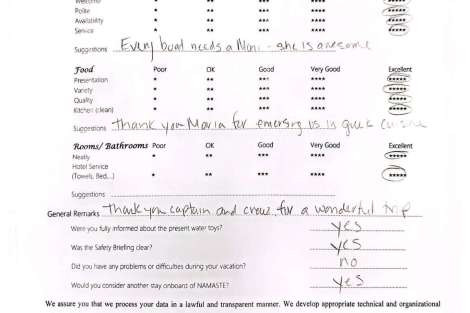 Welcome * ** *** **** *****
Polite * ** *** **** *****
Availability * ** *** **** *****
Service * ** *** **** *****
Suggestions Every boat needs a Moni - she is awesome
Food Poor OK Good Very Good Excellent
Presentation * ** *** **** *****
Variety * ** *** **** *****
Quality * ** *** **** *****
Kitchen (clean) * ** *** **** *****
Suggestions Thank you Maria for emersing us in greek cuisine
Rooms/ Bathrooms Poor OK Good Very Good Excellent
Neatly * ** *** **** *****
Hotel Service
(Towels, Bed,...) * ** *** **** *****
Suggestions
General Remarks Thank you captain and crew for a wonderful trip
Were you fully informed about the present water toys? yes
Was the Safety Briefing clear? yes
Did you have any problems or difficulties during your vacation? no
Would you consider another stay onboard of NAMASTE? yes
We assure you that we process your data in a lawful and transparent manner. We develop appropriate technical and organizational